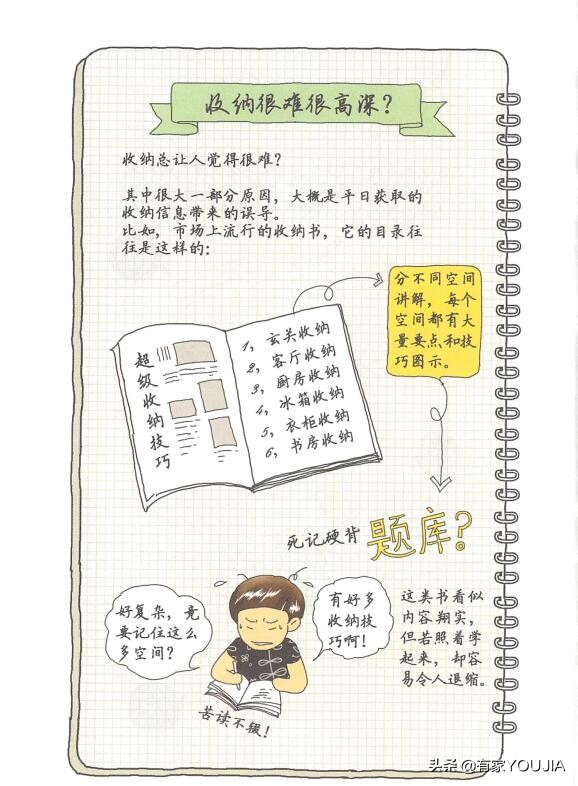 收纳很难很高深？
收纳总让人觉得很难？
其中很大一部分原因，大概是平日获取的
收纳信息带来的误导。
比如，市场上流行的收纳书，它的目录往
往是这样的：
分不同空间
讲解，每个
空间都有大
量要点和技
巧图示。
超级收纳技巧
1，玄关收纳
2，客厅收纳
3，厨房收纳
4，冰箱收纳
5，衣柜收纳
6，书房收纳
死记硬背
题库？
好复杂，竟
要记住这么
多空间？
有好多
收纳技
巧啊！
苦读不辍！
这类书看似
内容翔实，
但若照着学
起来，却容
易令人退缩。
头条 @有家YOUJIA